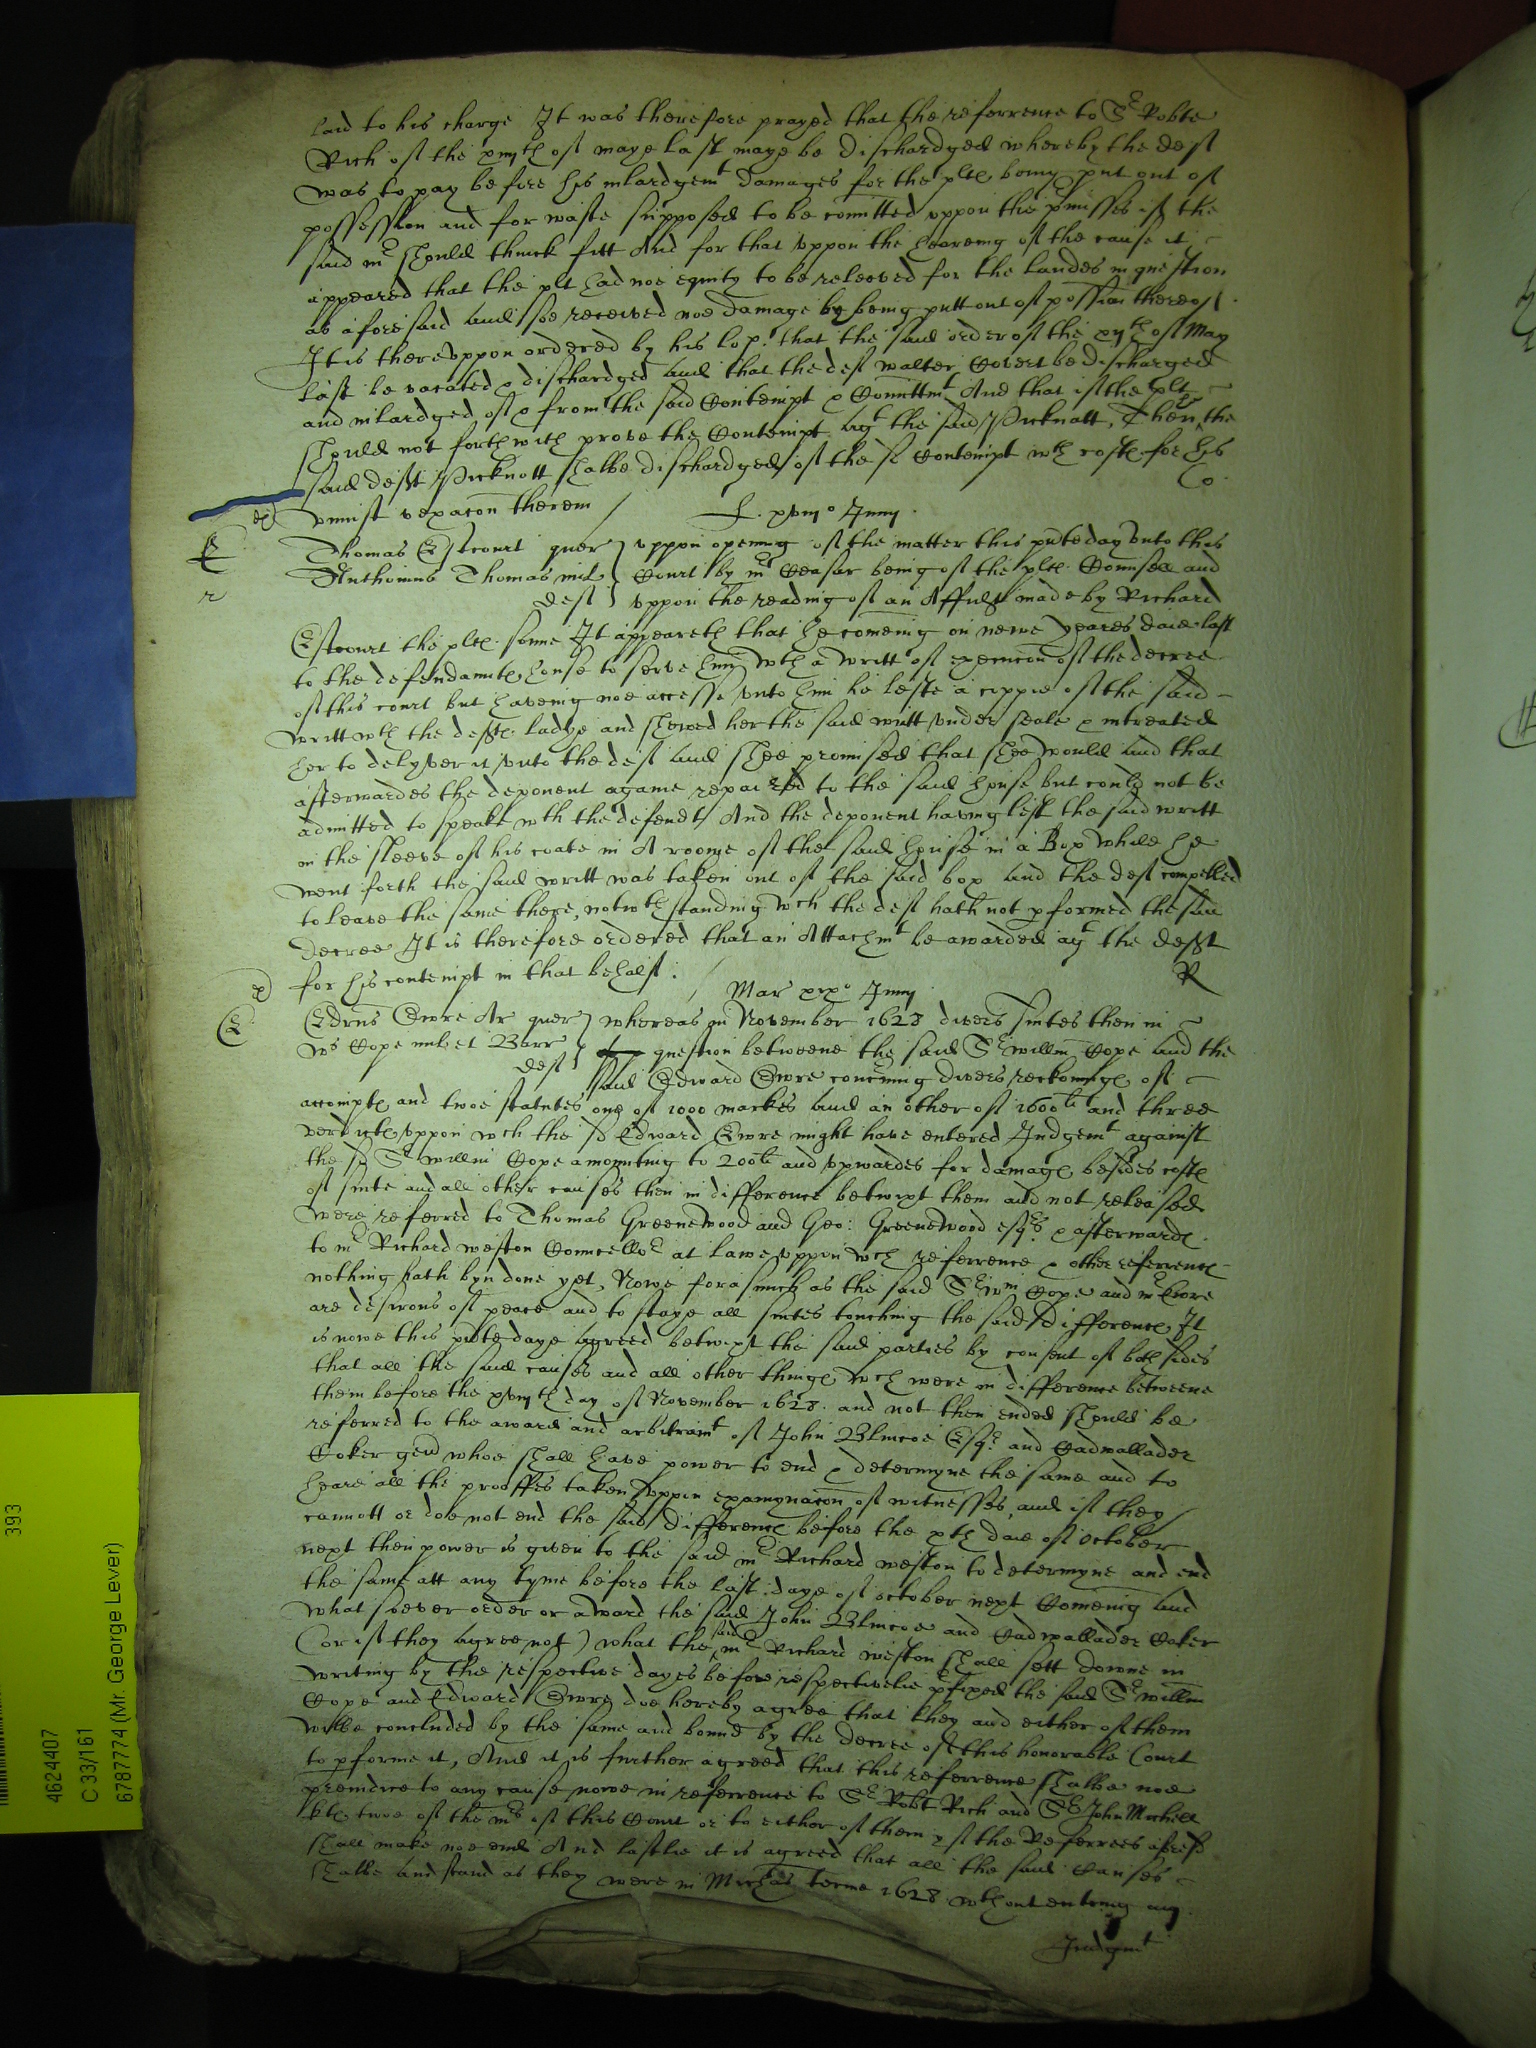 laid to his charge It was therefore prayed that the referrence to Sr Robte
Rich of the xiijth of maye last maye be dischardged whereby the deft
was to pay before his inlardgemt damages for the plts being put out of
possession and for waste supposed to be comitted vppon the pmisses if the
said mr should thinck fitt And for that vppon the heareing of the cause it
appeared that the plt had noe equity to be releeved for the landes in question
as aforesaid and soe received noe damage by being putt out of possion thereof.
It is therevppon ordered by his lop: that the said order of the xijth of May
last be vacated & dischardged and that the deft walter Covert be discharged
and inlardged of & from the said Contempt & Comittmt And that if the plt
should not forthwith prove the Contempt agt the said Picknott, Then the
said deft Picknott shalbe dischardged of the sd Contempt wth costs for his
vniust vexacon therein
Co.
S. xviijo Junij.
Thomas Estcourt quer vppon opening of the matter this pnte day vnto this
Anthonius Thomas mil Court by mr Ceasar being of the plts Counsell and
deft vppon the reading of an Affidt made by Richard
Estcourt the plts sonne It appeareth that he comeing on newe yeares daie last
to the defendaunts house to serve him wth a writt of execucon of the decree
of this court but haveing noe accesse vnto him he lefte a coppie of the said
writt wth the defts ladye and shewed her the said writt vnder seale & intreated
her to delyver it vnto the deft and shee promised that shee would and that
afterwardes the deponent againe repaired to the said house but could not be
admitted to speake wth the defendt And the deponent having left the said writt
in the sleeve of his coate in A roome of the said house in a Box while he
went forth the said writt was taken out of the said box and the dept compelled
to leave the same there, notwthstanding wch the deft hath not pformed the said
decree It is therefore ordered that an Attachmt be awarded agt the deft
for his contempt in that behalf.
R
Mar xixo Junij
Edrus Ewre Ar quer whereas in November 1628 divers suites then in
Ws Cope miles et Barr question betweene the said Sr willm Cope and the
deft said Edward Ewre concerning divers reckonings of
accompts and twoe statutes one of 1000 markes and an other of 1600li and three
verdicts vppon wch the sd Edward Ewre might have entered Judgemt against
the sd Sr willm Cope amounting to 200li and vpwardes for damage besides costs
of suite and all other causes then in difference betwixt them and not released
were referred to Thomas Greenewood and Geo: Greenewood esqrs & afterwards
to mr Richard weston Councellor at lawe vppon wch referrence & other referrences
nothing hath byn done yet, Nowe forasmuch as the said Sr Wm Cope and mr Ewre
are desirous of peace and to staye all suites touching the said differences It
is nowe this pnte daye agreed betwixt the said parties by consent of both sides
that all the said causes and all other things wch were in difference betweene
them before the xviijth day of November 1628. and not then ended should be
referred to the award and arbitramt of John Blincoe Esqr. and Cadwallader
Coker gent whoe shall have power to end & determyne the same and to
heare all the prooffes taken vppon examynacon of witnesses, and if they
cannott or doe not end the said differences before the xth daie of October
next then power is given to the said mr Richard weston to determyne and end
the same att any tyme before the last daye of october next Comeing and
what soever order or award the said John Blincoe and Cadwallader Coker
(or if they agree not) what the said mr Richard weston shall sett downe in
writing by the respective dayes before respectivelie pfixed the said Sr willm
Cope and Edward Ewre doe hereby agree that they and either of them
wilbe concluded by the same and bound by the decree of this honorable Court
to pforme it, And it is further agreed that this referrence shalbe noe
preiudice to any cause nowe in referrence to Sr Robt Rich and Sr John Michell
kts twoe of the mrs of this Court or to either of them if the Referrees aforesd
shall make noe end And lastlie it is agreed that all the said Causes
shalbe and stand as they were in Michas terme 1628 wthout entring any
Judgmt
393
4624407
C 33/161
6787774 (Mr. George Lever)